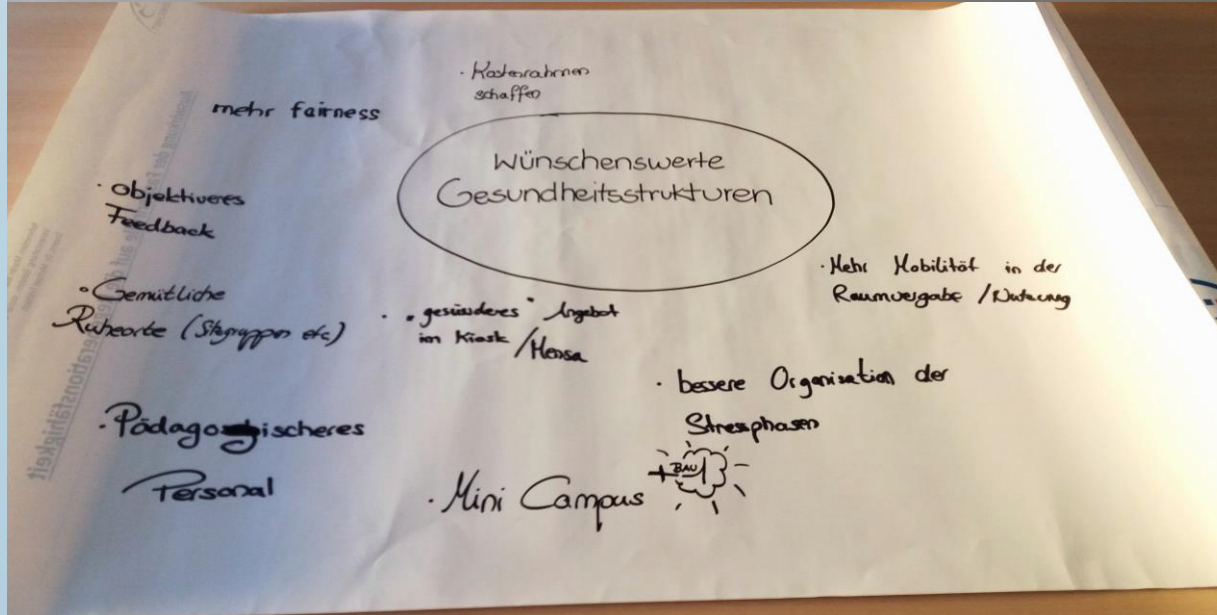 · Kostenrahmen
schaffen
mehr fairness
Wünschenswerte
Gesundheitsstrukturen
· Objektiveres
Feedback
· Gemütliche
Ruheorte (Sitzgruppen etc)
· "gesünderes" Angebot
im Kiosk / Mensa
· Mehr Mobilität in der
Raumvergabe / Nutzung
· bessere Organisation der
Stressphasen
· Pädagogischeres
Personal
· Mini Campus
BAU